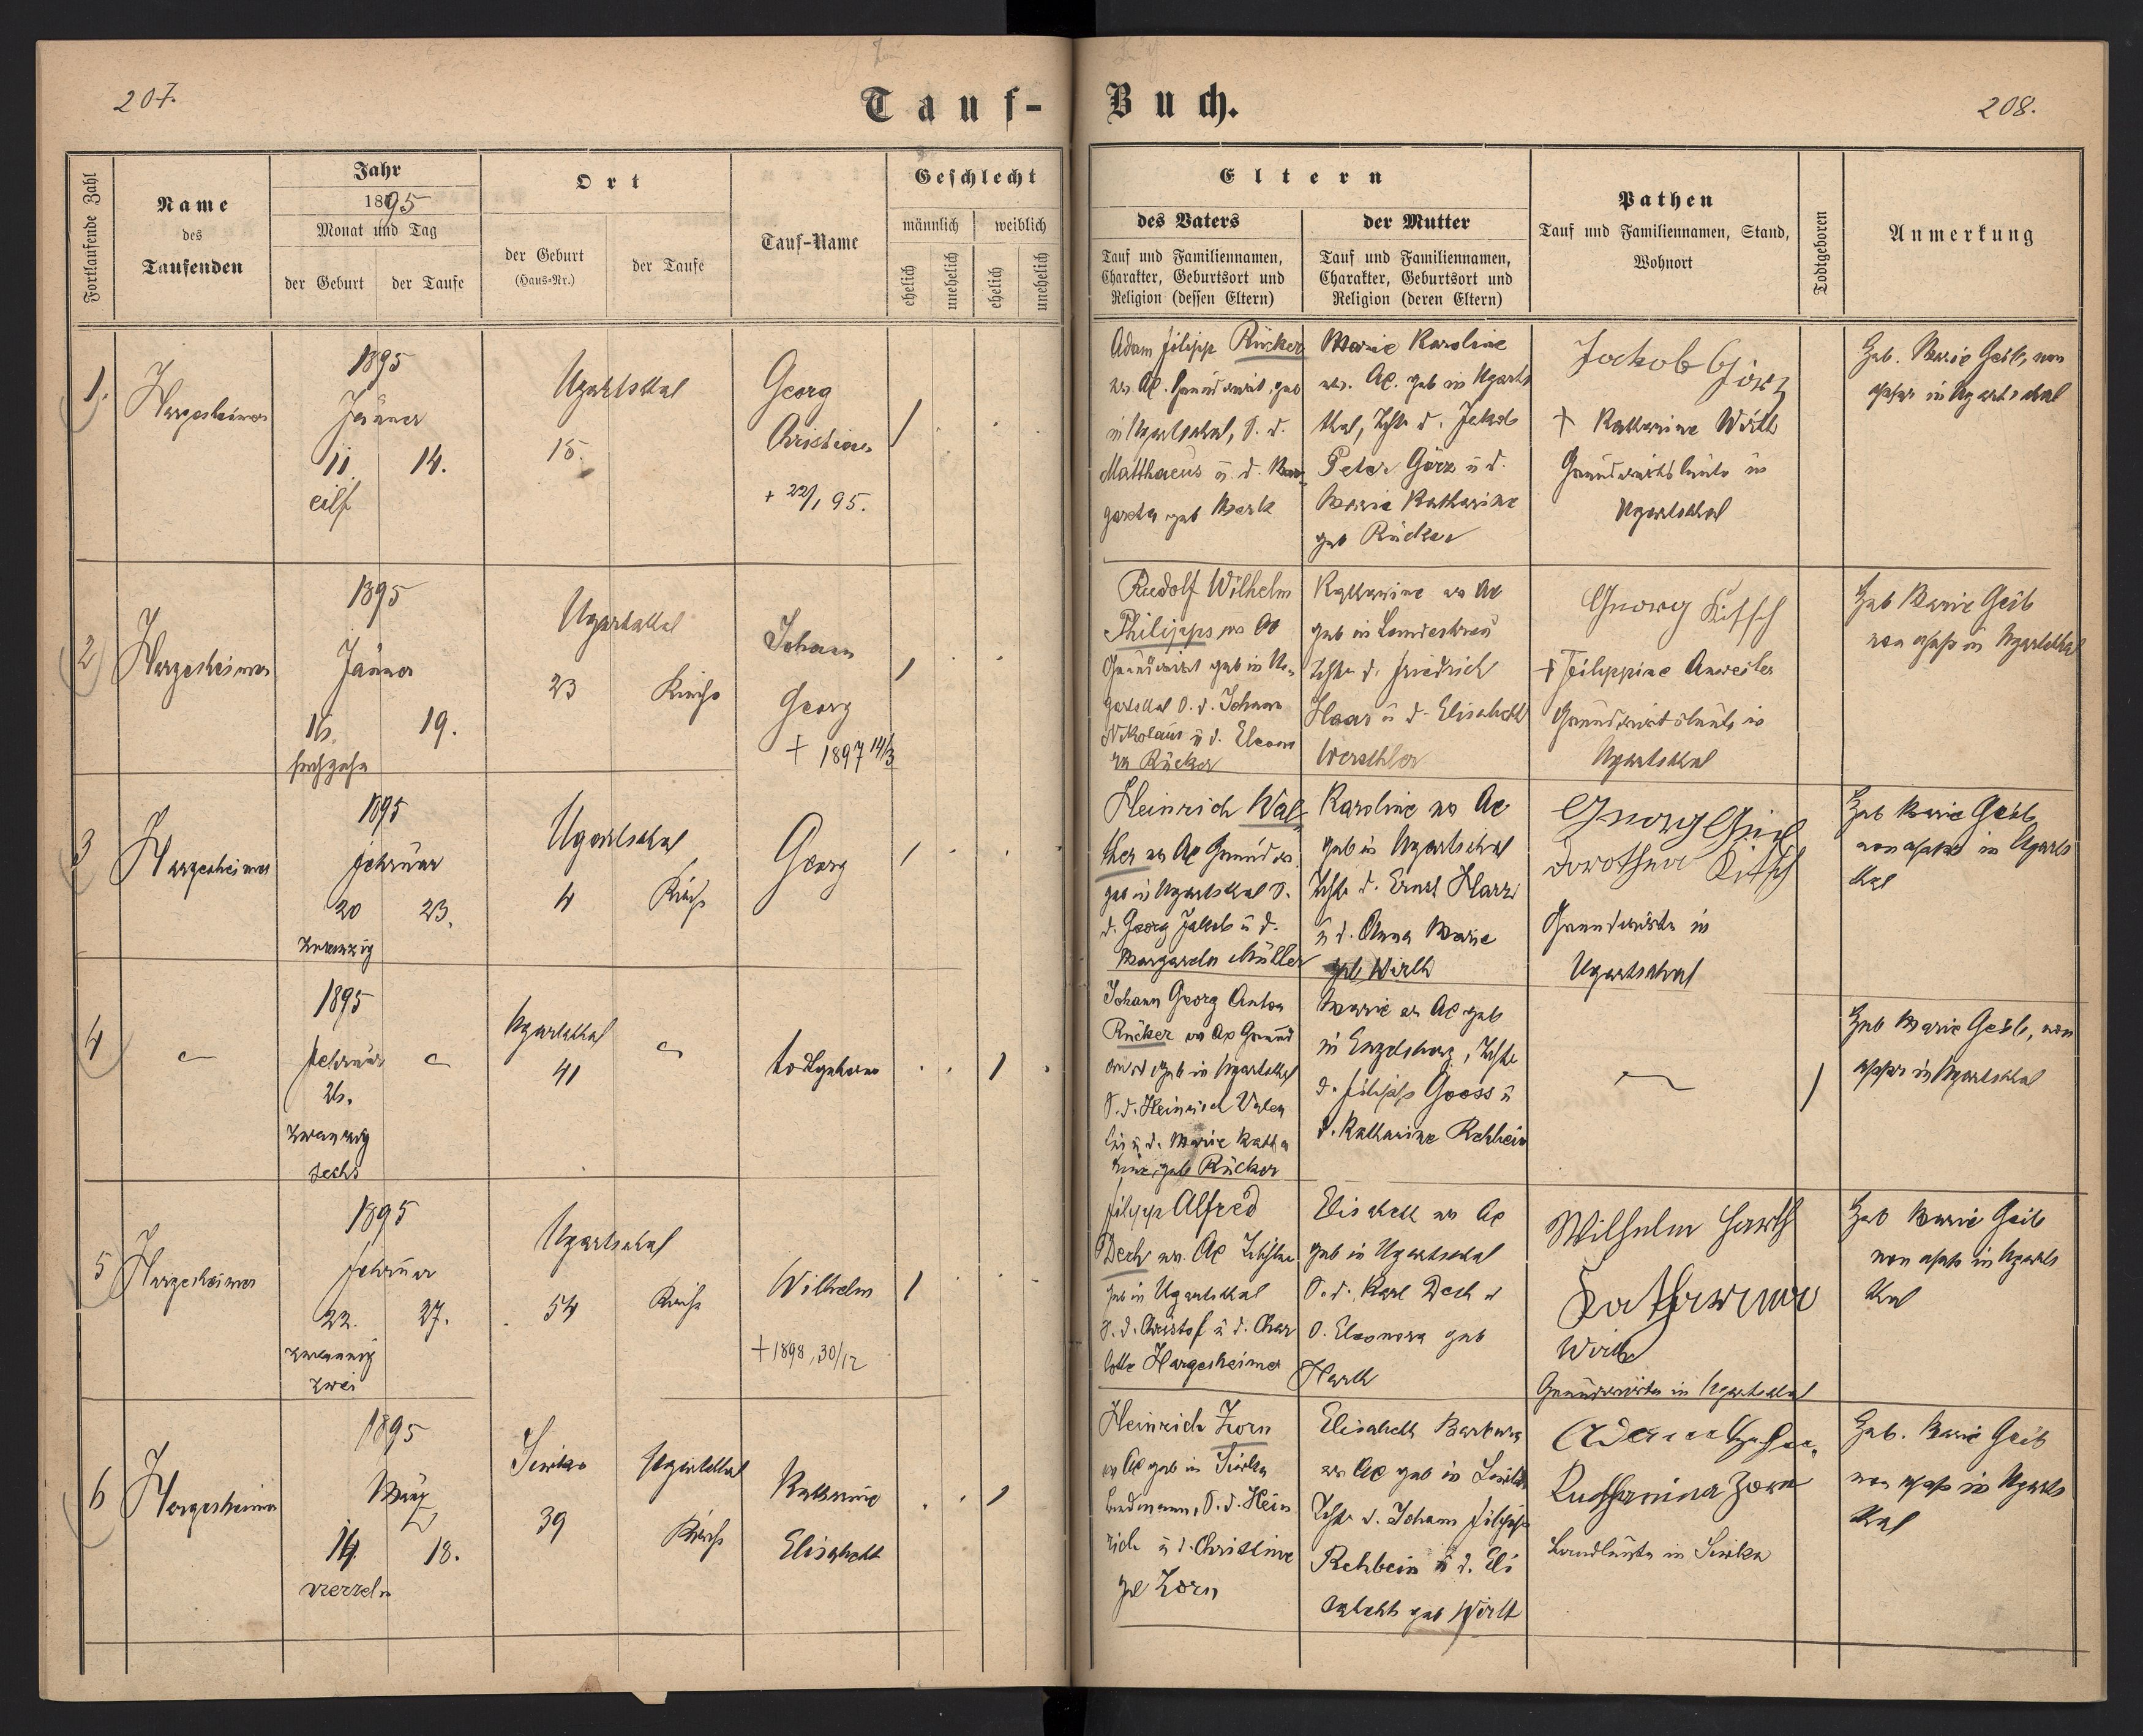 207.
Tauf-
Buch.
208.
Fortlaufende Zahl
Name
des
Taufenden
Jahr
1895
Monat und Tag
der Geburt
der Taufe
Ort
der Geburt
(Haus-Nr.)
der Taufe
Tauf-Name
Geschlecht
männlich
weiblich
ehelich
unehelich
ehelich
unehelich
Eltern
des Vaters
Tauf und Familiennamen,
Charakter, Geburtsort und
Religion (dessen Eltern)
der Mutter
Tauf und Familiennamen,
Charakter, Geburtsort und
Religion (deren Eltern)
Pathen
Tauf und Familiennamen, Stand,
Wohnort
Todtgeboren
Anmerkung
1.
Hargesheimer
1895
Jänner
11. 14.
eilf
Ugartsthal
15.
Georg
Christian
+ 22/1 95.
Adam Filipp Rücker
in Ugartsthal, S. d.
Matthaeus u. d. Mar
gareta geb Merk
Marie Karoline
geb in Ugarts
thal, d. Jakob
Peter Görz u d.
Marie Katharine
geb Rücker
Jackob Görz
+ Katharine Wirth
Grundwirtsleute in
Ugartsthal
Heb. Marie Geib, von
in Ugartsthal
2
Hargesheimer
1895
Jänner
16. 19.
sechzehn
Ugartsthal
23 Kirche
Johann
Georg
+ 1897 14/3
Rudolf Wilhelm
Philipps
Grundwirt geb in U
gartsthal S. d. Johann
Nikolaus u d. Eleono
ra Rücker
Katharine
geb in Landestreu
d. Friedrich
Haas u d. Elisabeth
Georg Kitsch
+ Filippine Anweiler
Grundwirtsleute in
Ugartsthal
Heb Marie Geib
von in Ugartsthal
3
Hargesheimer
1895
Februar
20 23.
zwanzig
Ugartsthal
4 Kirche
Georg
Heinrich Wal
ther
geb in Ugartsthal S.
d. Georg Jakob u d.
Margareta Müller
Karoline
geb in Ugartsthal
d. Ernst
u d. Anna Marie
geb Wirth
Georg
Dorothea Kitsch
Grundwirte in
Ugartsthal
Heb Marie Geib
von in Ugarts
thal
4
1895
Februar
26.
zwanzig
sechs
Ugartsthal
41
todtgeboren
Johann Georg Anton
Rücker
geb in Ugartsthal
S. d. Heinrich Valen
tin u d. Marie Katha
rine, geb Rücker
Marie geb
in Engelsberg,
d. Filipp Gooss u
d. Katharine Rehbein
Heb Marie Geib, von
in Ugartsthal
5
Hargesheimer
1895
Februar
22. 27.
zwanzig
zwei
Ugartsthal
54 Kirche
Wilhelm
+ 1898, 30/12
Filipp Alfred
Dech
geb in Ugartsthal
S. d. Christof u d. Char
lotte Hargesheimer
Elisabeth
geb in Ugartsthal
d. Karl Dech u
d. Eleonora geb
Harth
Wilhelm Harth
Katharina
Wirth
Grundwirte in Ugartsthal
Heb Marie Geib
von in Ugarts
thal
6
Hargesheimer
1895
März
14. 18.
vierzehn
Siwka Ugartsthal
39 Kirche
Katharine
Elisabeth
Heinrich Zorn
geb in Siwka
Landmann, S. d. Hein
rich u d. Christine
geb Zorn
Elisabeth Barbara
geb in Siwka
d. Johann Filipp
Rehbein u d. Eli
sabeth geb Wirth
Adam
Katharina Zorn
Landleute in Siwka
Heb. Marie Geib
von in Ugarts
thal